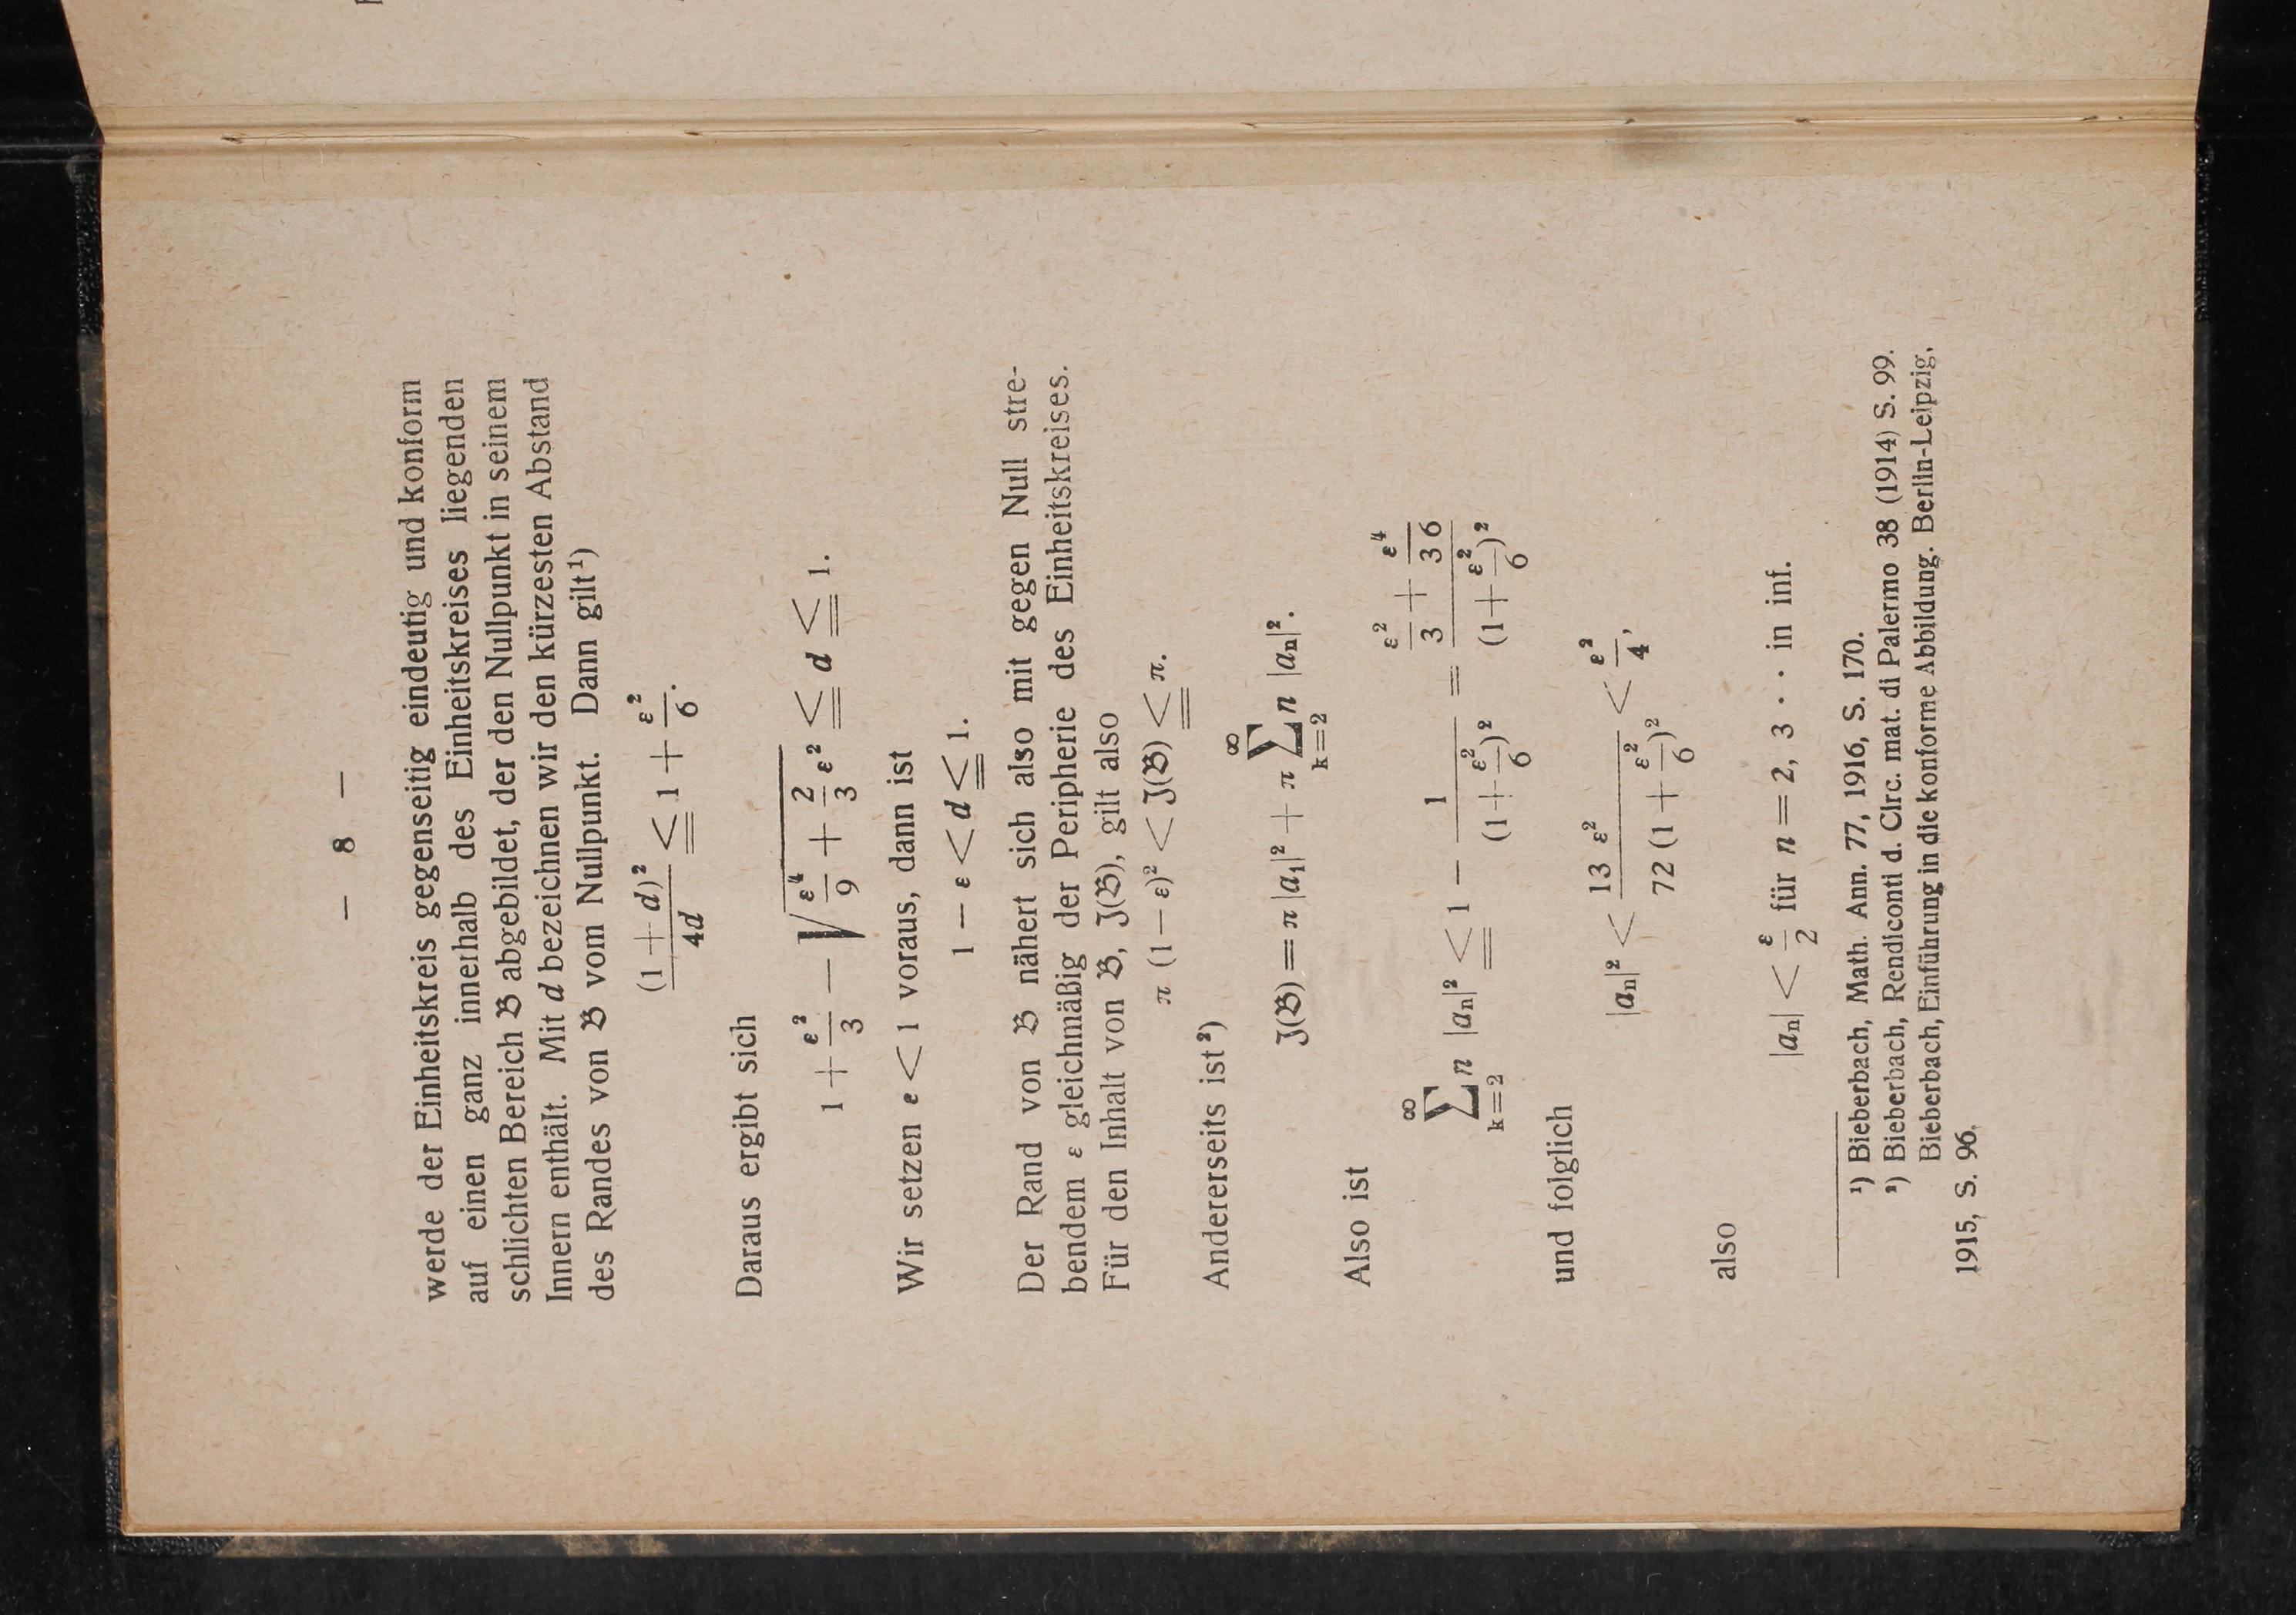 — 8 —
werde der Einheitskreis gegenseitig eindeutig und konform
auf einen ganz innerhalb des Einheitskreises liegenden
schlichten Bereich 𝔅 abgebildet, der den Nullpunkt in seinem
Innern enthält. Mit d bezeichnen wir den kürzesten Abstand
des Randes von 𝔅 vom Nullpunkt. Dann gilt¹)
(1 + d)² / 4d ≦ 1 + ε²/6.
Daraus ergibt sich
1 + ε²/3 — √(ε⁴/9 + 2/3 ε²) ≦ d ≦ 1.
Wir setzen e < 1 voraus, dann ist
1 — ε < d ≦ 1.
Der Rand von 𝔅 nähert sich also mit gegen Null stre-
bendem ε gleichmäßig der Peripherie des Einheitskreises.
Für den Inhalt von 𝔅, ℑ(𝔅), gilt also
π (1 — ε)² < ℑ(𝔅) ≦ π.
Andererseits ist²)
ℑ(𝔅) = π |a₁|² + π ∑_{k=2}^{∞} n |aₙ|².
Also ist
∑_{k=2}^{∞} n |aₙ|² ≦ 1 — 1 / (1 + ε²/6)² = (ε²/3 + ε⁴/36) / (1 + ε²/6)²
und folglich
|aₙ|² < 13 ε² / 72 (1 + ε²/6)² < ε²/4,
also
|aₙ| < ε/2 für n = 2, 3 · · in inf.
¹) Bieberbach, Math. Ann. 77, 1916, S. 170.
²) Bieberbach, Rendiconti d. Circ. mat. di Palermo 38 (1914) S. 99.
Bieberbach, Einführung in die konforme Abbildung. Berlin-Leipzig,
1915, S. 96.